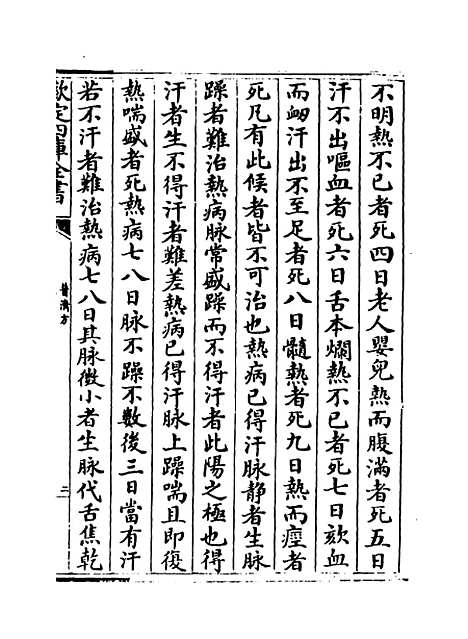 不明熱不已者死四日老人嬰兒熱而腹滿者死五日
汗不出嘔血者死六日舌本爛熱不已者死七日欬血
而衂汗出不至足者死八日髓熱者死九日熱而痙者
死凡有此候者皆不可治也熱病已得汗脉静者生脉
躁者難治熱病脉常盛躁而不得汗者此陽之極也得
汗者生不得汗者難差熱病已得汗脉上躁喘且即復
熱喘盛者死熱病七八日脉不躁不數後三日當有汗
若不汗者難治熱病七八日其脉微小者生脉代舌焦乾
欽定四庫全書
普濟方
三